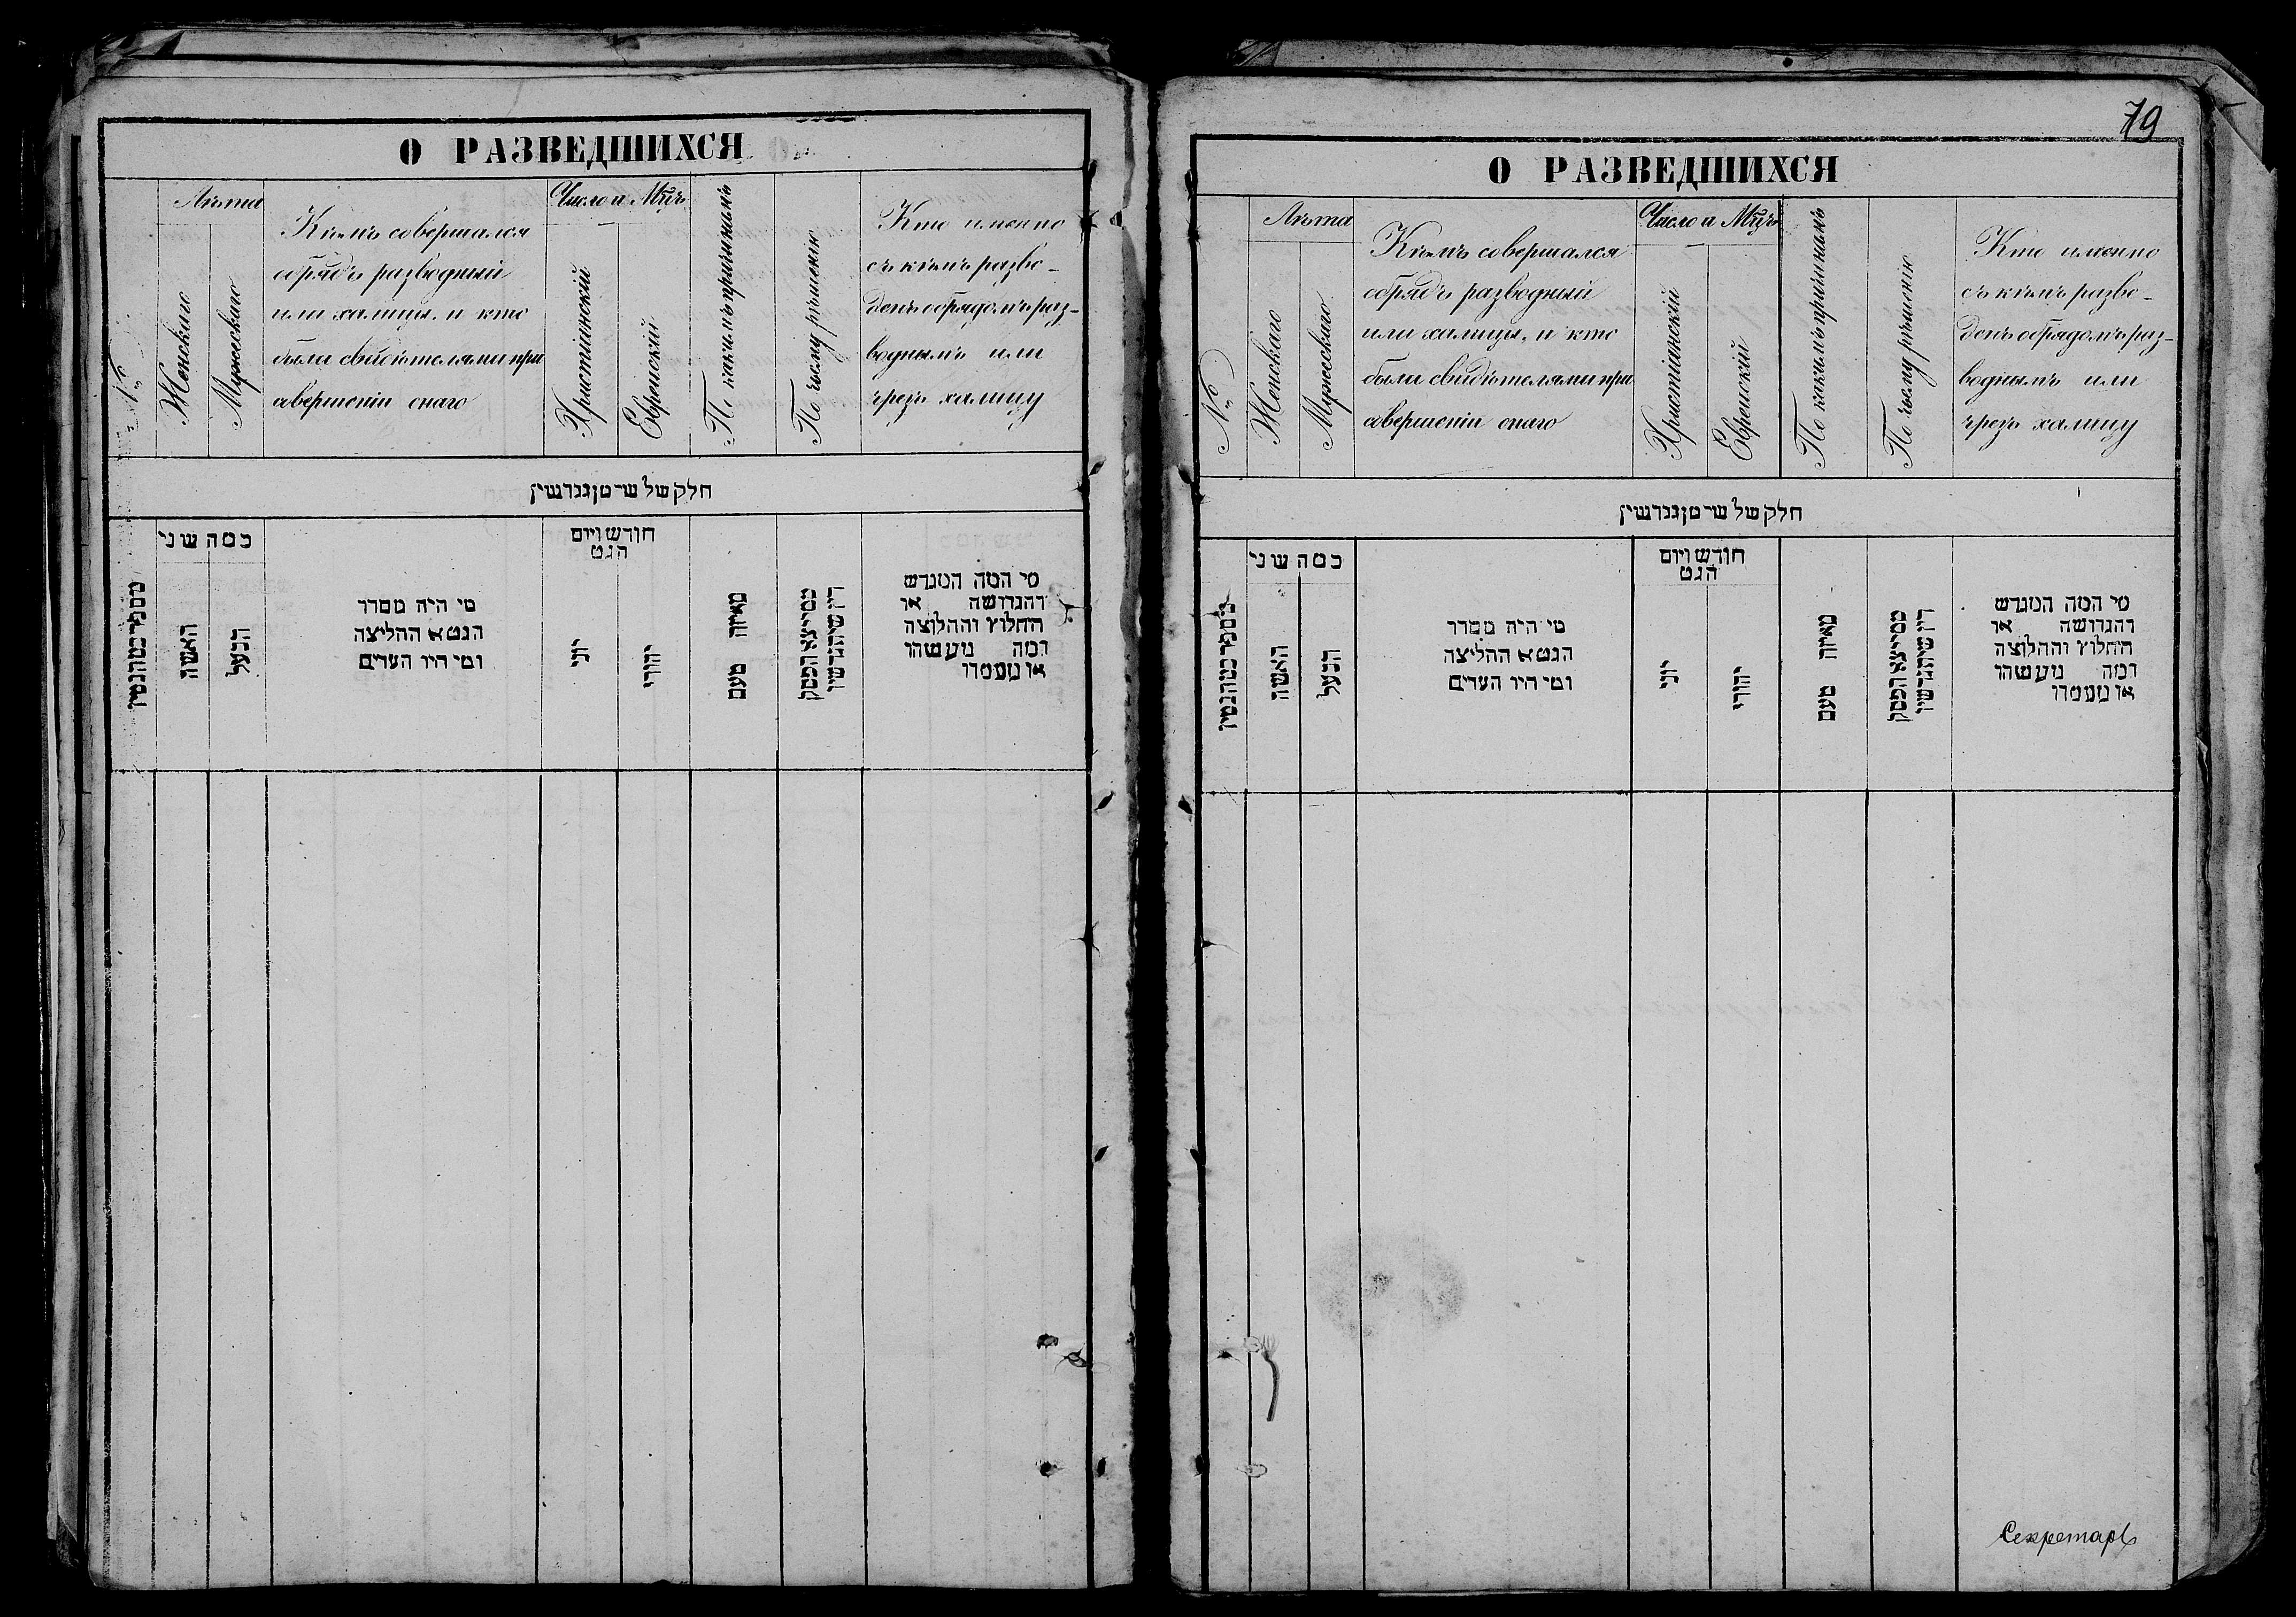 О РАЗВЕДШИХСЯ
№
Лѣта
Женскаго
Мужескаго
Кѣмъ совершался
обрядъ разводный
или халицы, и кто
были свидѣтелями при
совершеніи онаго
Число и Мѣцъ
Христіанскій
Еврейскій
По какимъ причинамъ
По чьему рѣшенію
Кто именно
съ кѣмъ разве-
денъ обрядомъ раз-
воднымъ или
чрезъ халицу
חלק של שטן גרושין
כמה שני
האשה
הבעל
מי היה מסדר
הגט או החליצה
ומי היו העדים
חודש ויום
הגט
יוני
יהודי
מאיזה טעם
ממי יצא הפסק
דין שיתגרשו
מי המה המגרש
והגרושה או
החולץ והחלוצה
ומה מעשהו
או מעמדו
79
О РАЗВЕДШИХСЯ
№
Лѣта
Женскаго
Мужескаго
Кѣмъ совершался
обрядъ разводный
или халицы, и кто
были свидѣтелями при
совершеніи онаго
Число и Мѣцъ
Христіанскій
Еврейскій
По какимъ причинамъ
По чьему рѣшенію
Кто именно
съ кѣмъ разве-
денъ обрядомъ раз-
воднымъ или
чрезъ халицу
חלק של שטן גרושין
כמה שני
האשה
הבעל
מי היה מסדר
הגט או החליצה
ומי היו העדים
חודש ויום
הגט
יוני
יהודי
מאיזה טעם
ממי יצא הפסק
דין שיתגרשו
מי המה המגרש
והגרושה או
החולץ והחלוצה
ומה מעשהו
או מעמדו
Секретарь